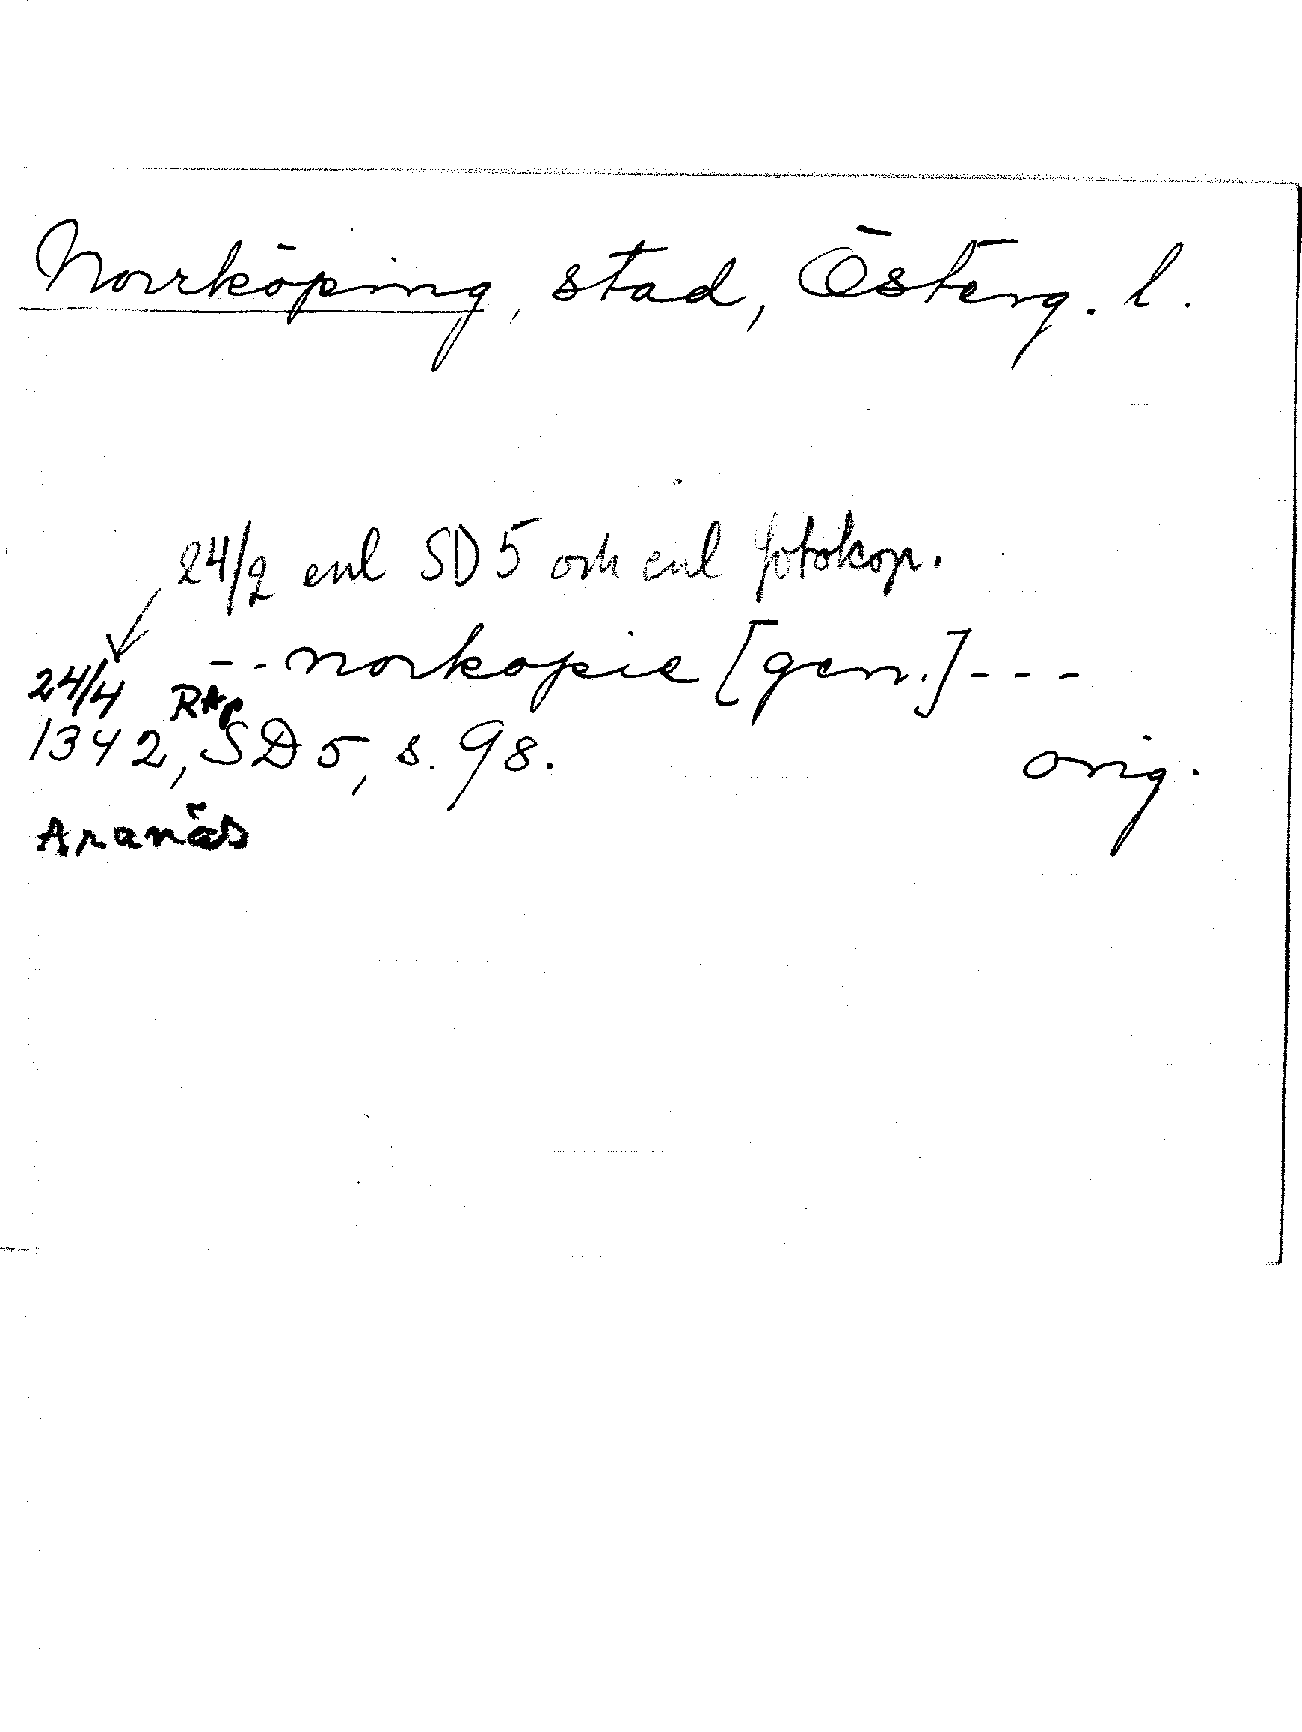 Norrköping, stad, Österg. l.
24/2 enl SD 5 och enl fotokop.
- - norkopie [gen.] - - -
24/4 RAp
1342, SD 5, s. 98. orig.
Aranäs